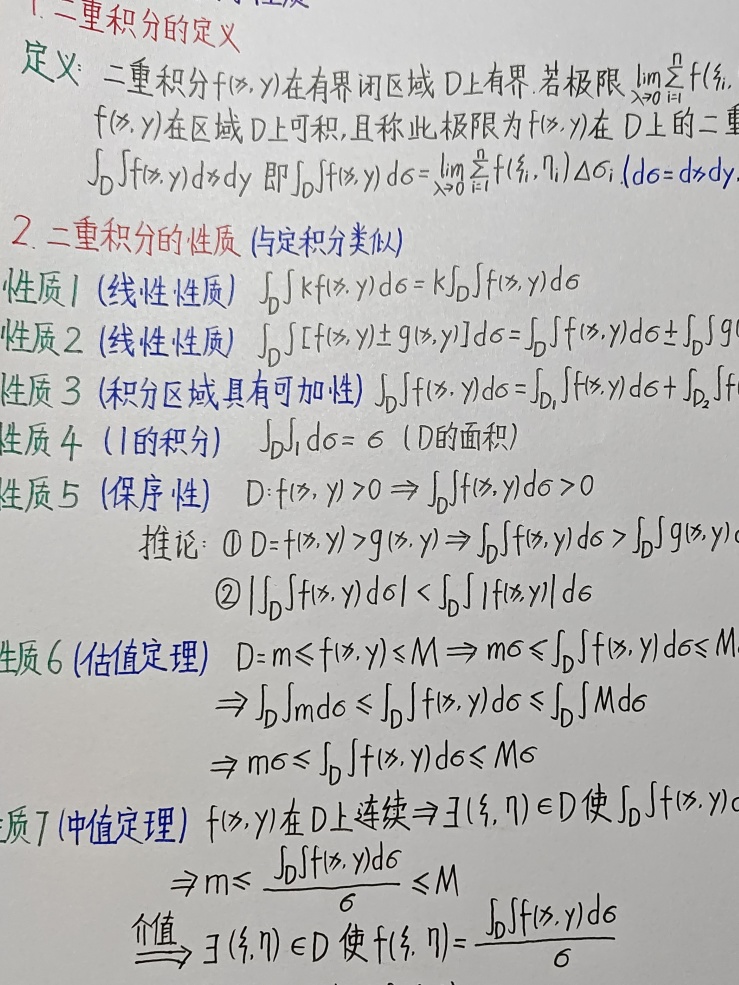 1.二重积分的定义
定义: 二重积分f(x,y)在有界闭区域 D上有界.若极限 lim_{λ→0} Σ_{i=1}^{n} f(ξi,
f(x,y)在区域D上可积,且称此极限为f(x,y)在 D上的二重
∫_D∫f(x,y)dxdy 即∫_D∫f(x,y)dσ=lim_{λ→0} Σ_{i=1}^{n} f(ξi,ηi)Δσi.(dσ=dxdy.
2.二重积分的性质 (与定积分类似)
性质1 (线性性质) ∫_D∫kf(x,y)dσ=k∫_D∫f(x,y)dσ
性质2 (线性性质) ∫_D∫[f(x,y)±g(x,y)]dσ=∫_D∫f(x,y)dσ±∫_D∫g(
性质3 (积分区域具有可加性) ∫_D∫f(x,y)dσ=∫_{D1}∫f(x,y)dσ+∫_{D2}∫f(
性质4 (1的积分) ∫_D∫1dσ=σ (D的面积)
性质5 (保序性) D:f(x,y)>0⇒∫_D∫f(x,y)dσ>0
推论:①D=f(x,y)>g(x,y)⇒∫_D∫f(x,y)dσ>∫_D∫g(x,y)d
②|∫_D∫f(x,y)dσ|<∫_D∫|f(x,y)|dσ
性质6 (估值定理) D=m≤f(x,y)≤M⇒mσ≤∫_D∫f(x,y)dσ≤M
⇒∫_D∫mdσ≤∫_D∫f(x,y)dσ≤∫_D∫Mdσ
⇒mσ≤∫_D∫f(x,y)dσ≤Mσ
性质7 (中值定理) f(x,y)在D上连续⇒∃(ξ,η)∈D使∫_D∫f(x,y)d
⇒m≤ ∫_D∫f(x,y)dσ/σ ≤M
介值⇒∃(ξ,η)∈D使f(ξ,η)= ∫_D∫f(x,y)dσ/σ